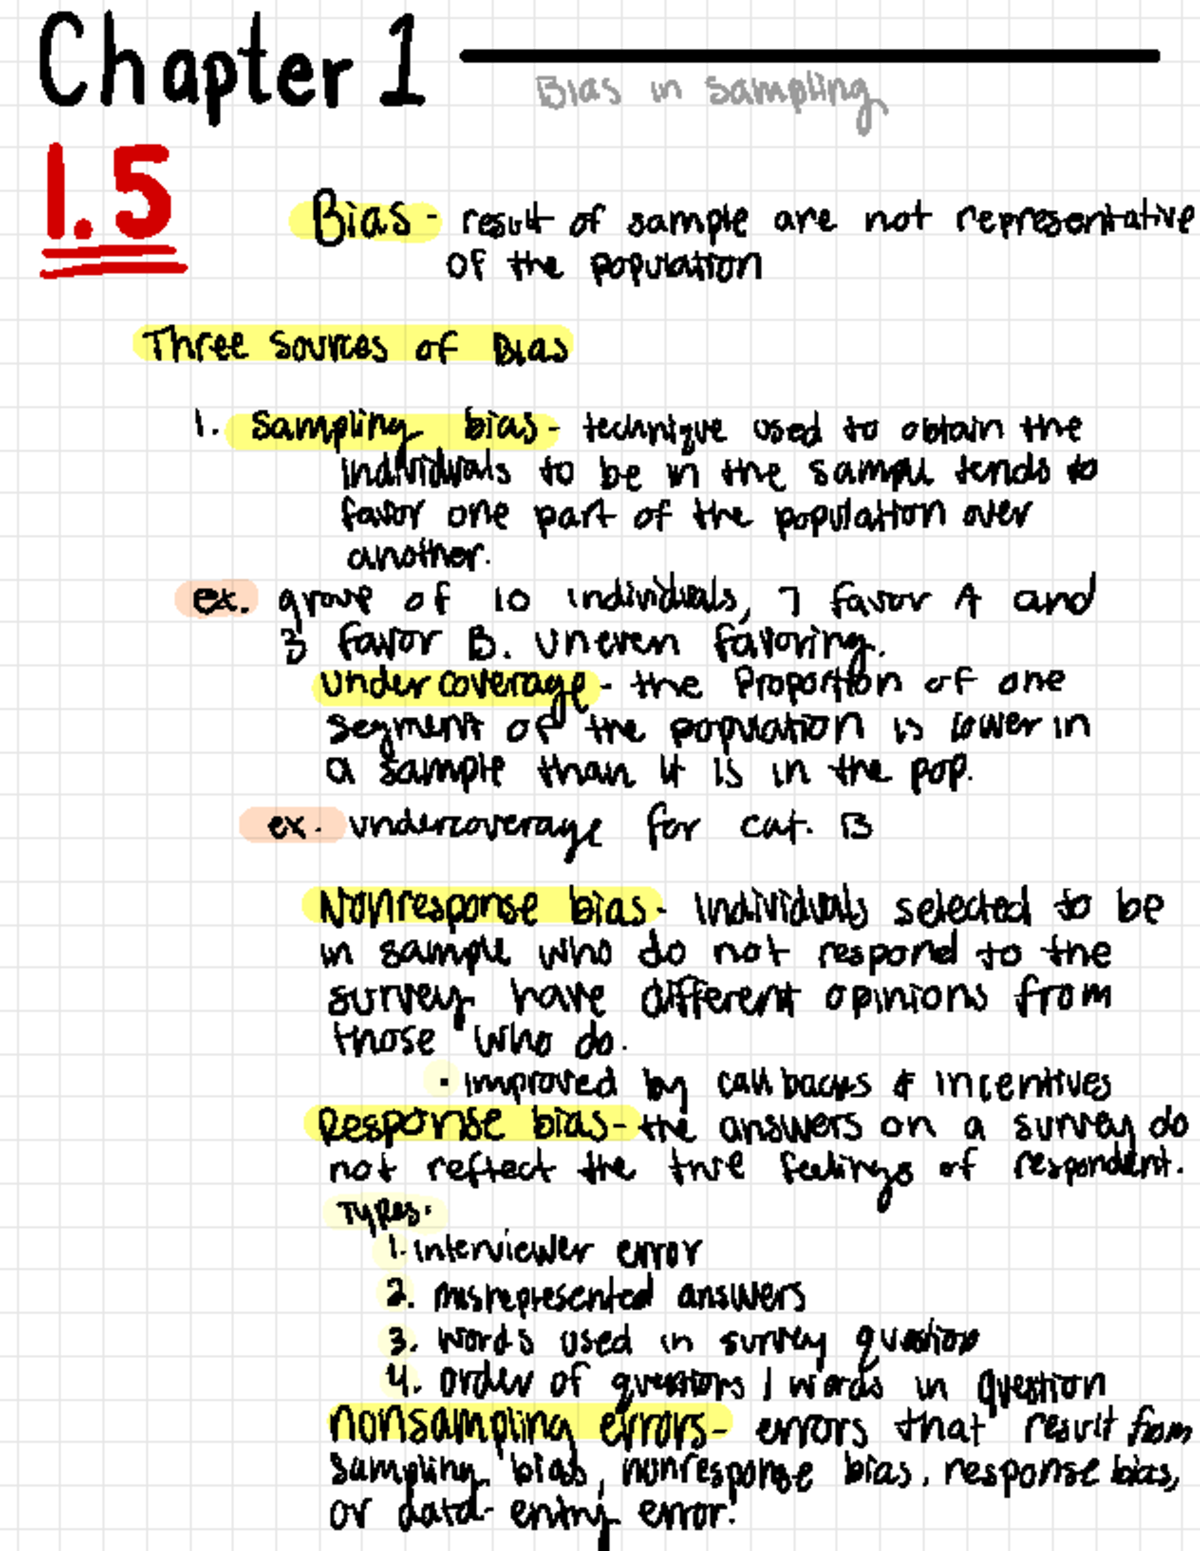 Chapter 1
Bias in Sampling
1.5
Bias - result of sample are not representative
of the population
Three Sources of Bias
1. Sampling bias - technique used to obtain the
individuals to be in the sample tends to
favor one part of the population over
another.
ex. group of 10 individuals, 7 favor A and
3 favor B. uneven favoring.
Undercoverage - the Proportion of one
segment of the population is lower in
a sample than it is in the pop.
ex. undercoverage for cat. B
Nonresponse bias - Individuals selected to be
in sample who do not respond to the
survey have different opinions from
those who do.
• improved by callbacks & incentives
Response bias - the answers on a survey do
not reflect the true feelings of respondent.
Types:
1. interviewer error
2. misrepresented answers
3. words used in survey question
4. order of questions / words in question
nonsampling errors - errors that result from
sampling bias, nonresponse bias, response bias,
or data-entry error.